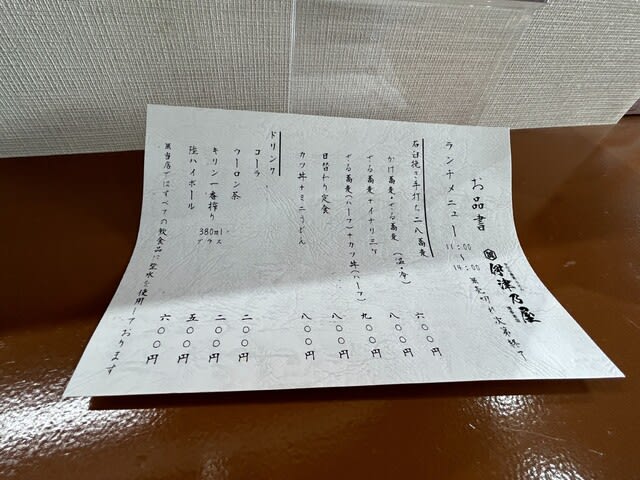 お品書
津乃屋
ランチメニュー 11:00〜14:00 ※売切れ次第終了
石臼挽き・手打ち二八蕎麦
かけ蕎麦・ざる蕎麦(温・冷) 六〇〇円
ざる蕎麦+イナリ三ケ 八〇〇円
ざる蕎麦(ハーフ)+カツ丼(ハーフ) 九〇〇円
日替わり定食 八〇〇円
カツ丼+ミニうどん 八〇〇円
ドリンク
コーラ 二〇〇円
ウーロン茶 二〇〇円
キリン一番搾り 380ml・グラス 五〇〇円
陸ハイボール 六〇〇円
※当店ではすべての飲食品に聖水を使用しております